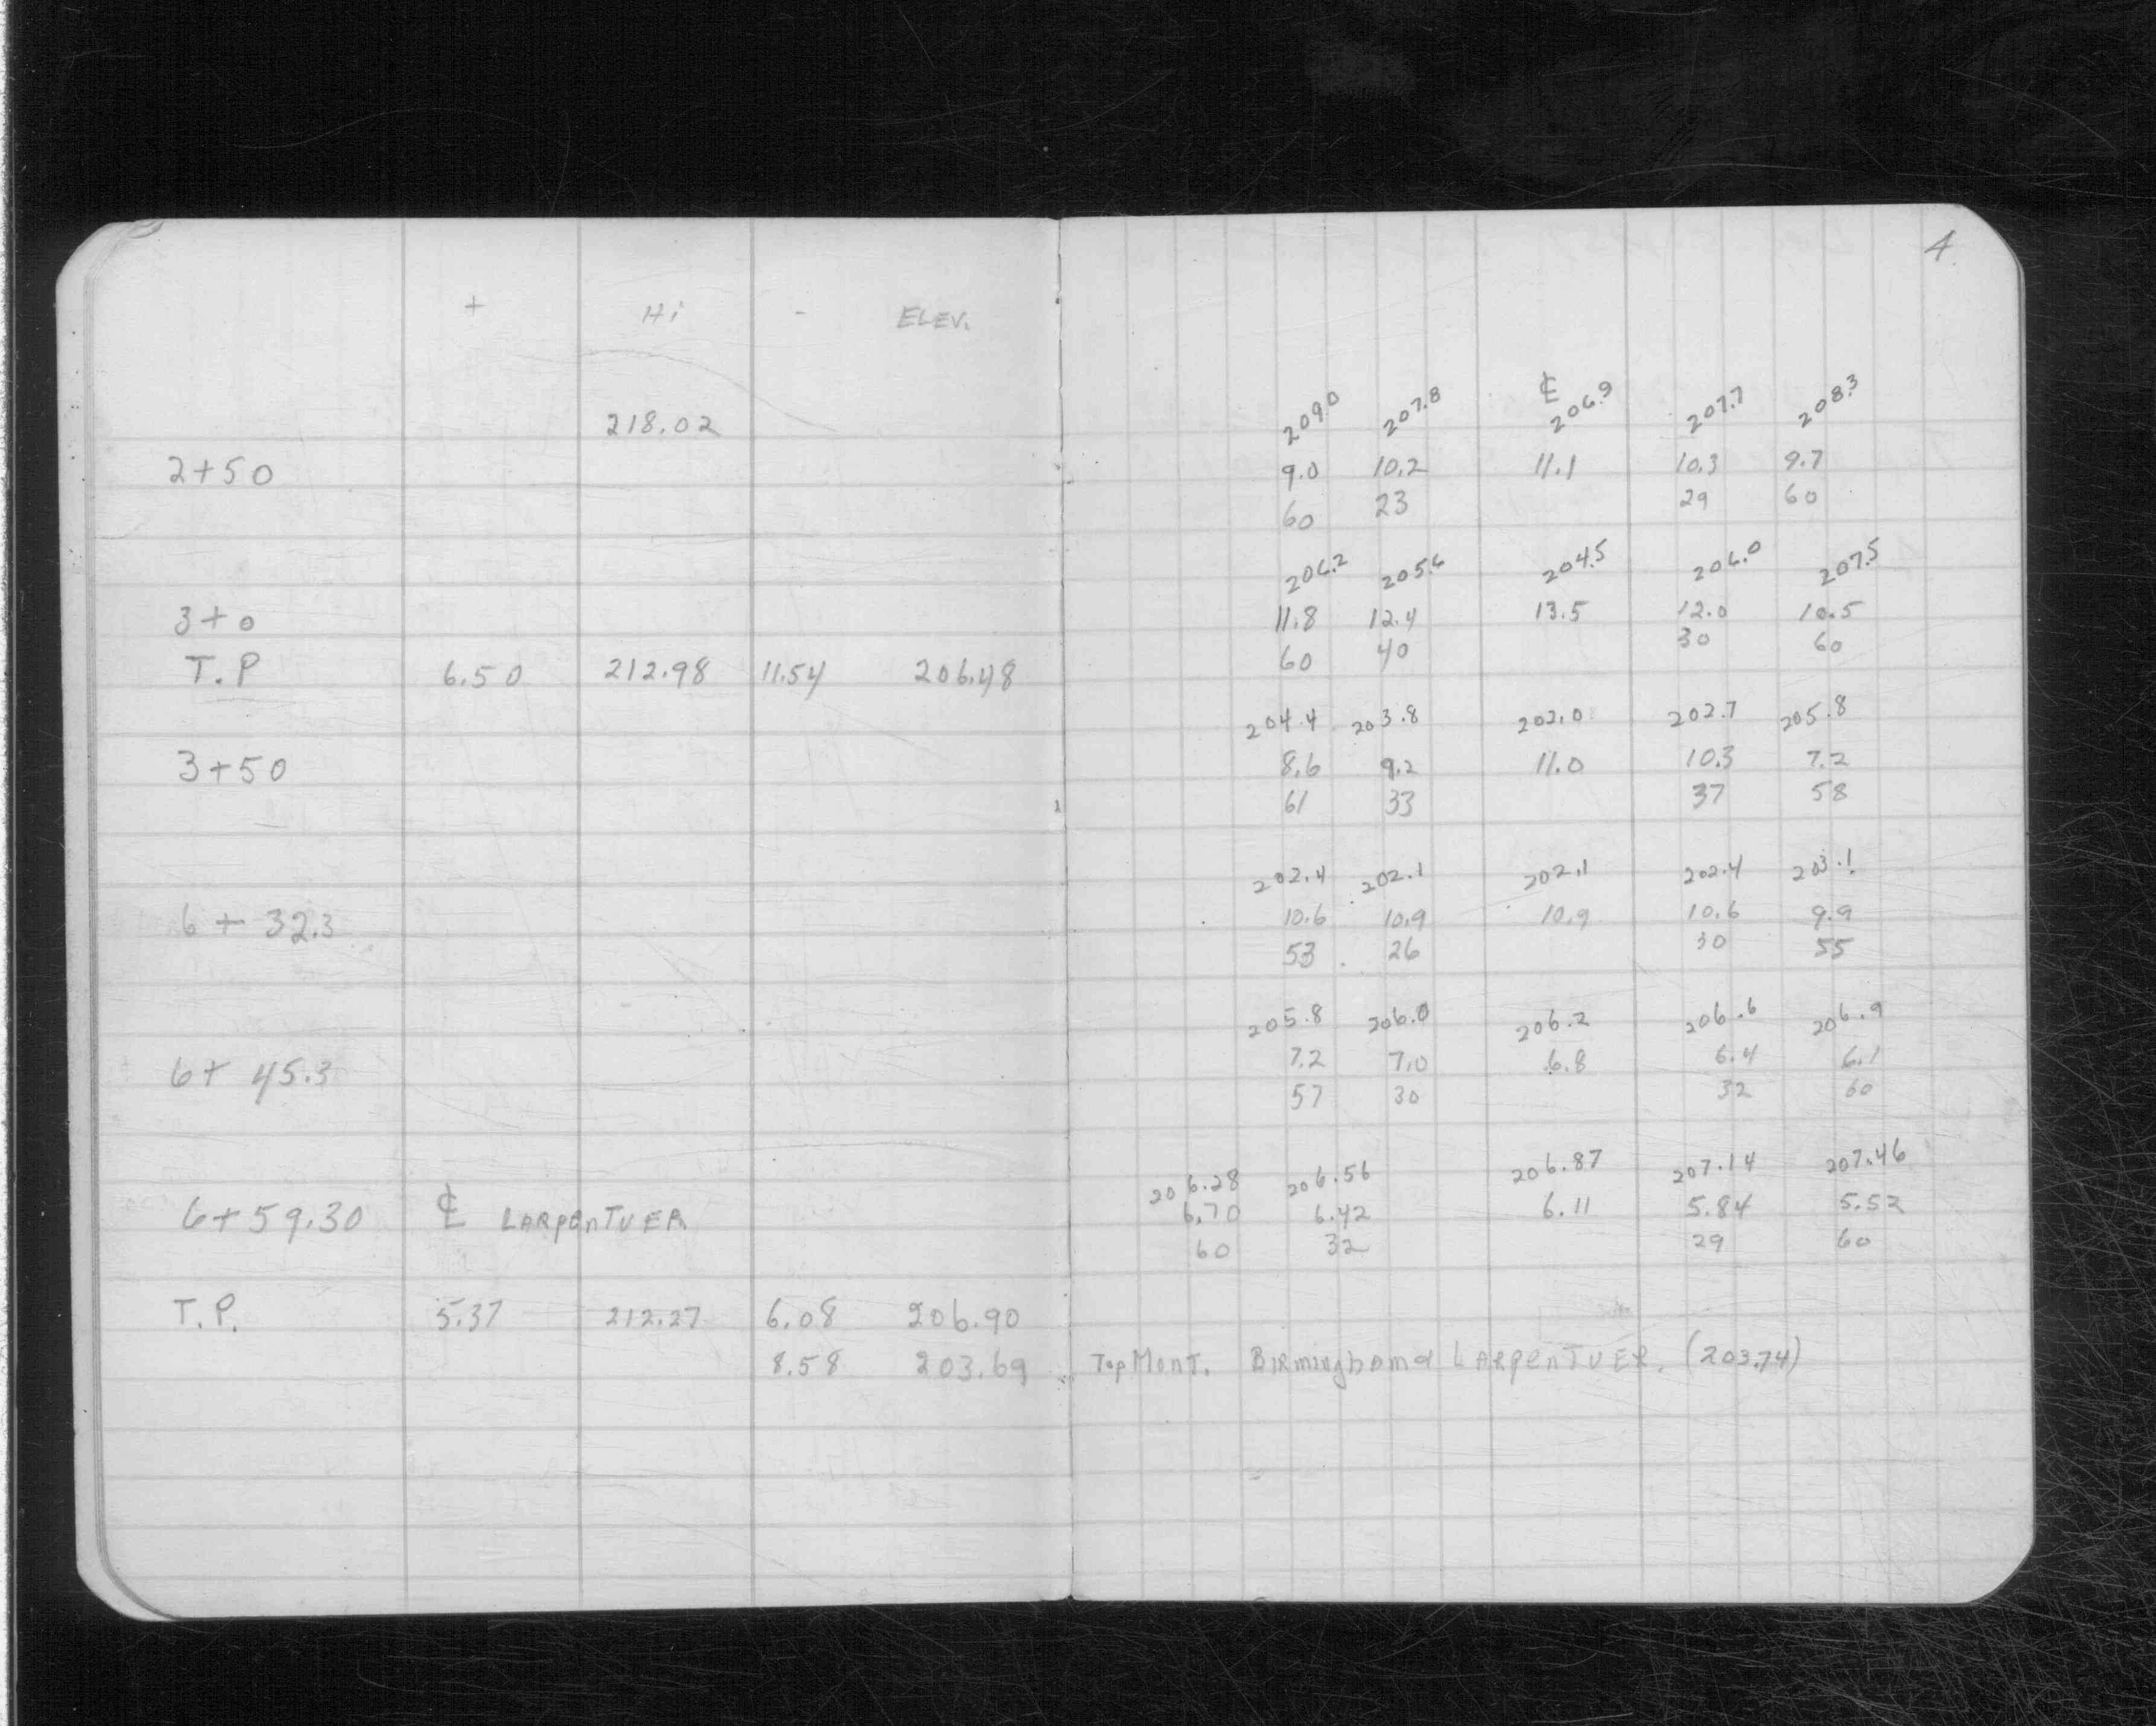 4
+ Hi - ELEV.
℄
218.02 209.0 207.8 206.9 207.7 208.3
2+50 9.0 10.2 11.1 10.3 9.7
60 23 29 60
206.2 205.6 204.5 206.0 207.5
3+0 11.8 12.4 13.5 12.0 10.5
60 40 30 60
T.P 6.50 212.98 11.54 206.48
204.4 203.8 202.0 202.7 205.8
3+50 8.6 9.2 11.0 10.3 7.2
61 33 37 58
202.4 202.1 202.1 202.4 203.1
6+32.3 10.6 10.9 10.9 10.6 9.9
53 26 30 55
205.8 206.0 206.2 206.6 206.9
6+45.3 7.2 7.0 6.8 6.4 6.1
57 30 32 60
206.28 206.56 206.87 207.14 207.46
6+59.30 ℄ LARpenTUER 6.70 6.42 6.11 5.84 5.52
60 32 29 60
T.P. 5.37 212.27 6.08 206.90
8.58 203.69 Top Mont. BIRmingham & LARpenTUER. (203.74)